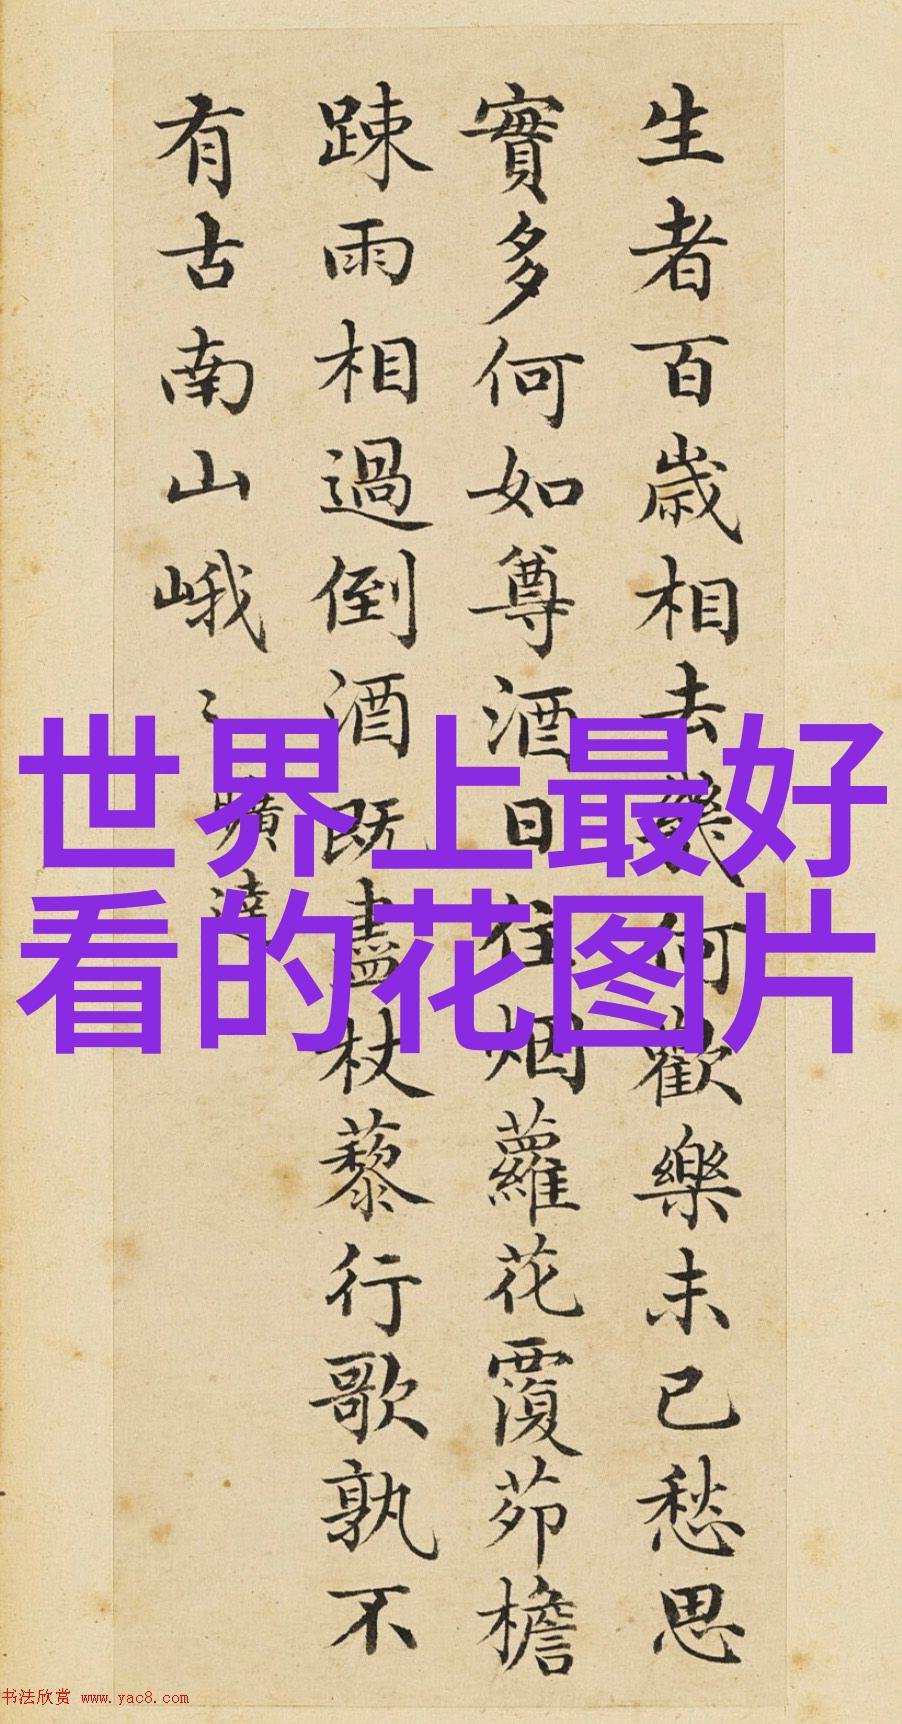 生者百歳相去幾何歡樂未已愁思
實多何如尊酒日往烟蘿花覆茆檐
踈雨相過倒酒既盡杖藜行歌孰不
有古南山峨〻曠達
世界上最好
看的花图片
书法欣赏 www.yac8.com